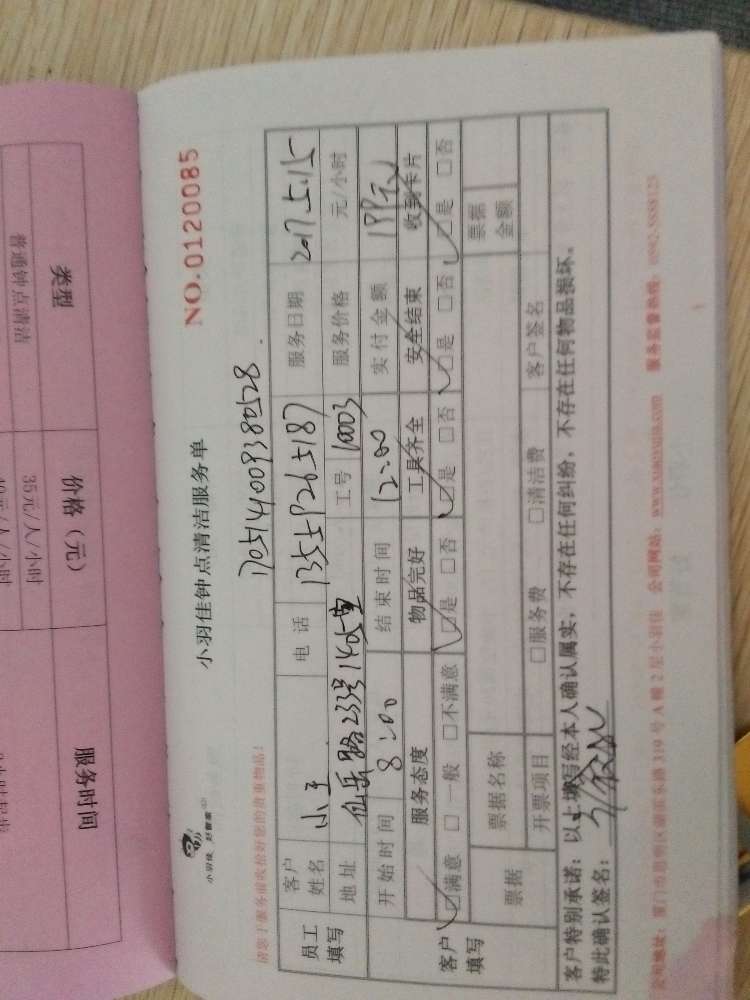 小羽佳钟点清洁服务单
NO.0120085
小羽佳 好管家
请您于服务前收拾好您的贵重物品!
员工填写
客户姓名 小王 电话 13559265187 服务日期 2017.5.15
地址 仙岳路233号1405室 工号 10003 服务价格 元/小时
开始时间 8:00 结束时间 12:00 实付金额 199元
客户填写
服务态度 物品完好 工具齐全 安全结束 收到卡片
☑满意 □一般 □不满意 ☑是 □否 ☑是 □否 ☑是 □否 ☑是 □否
票据 票据名称 票据金额
开票项目 □服务费 □清洁费 客户签名
客户特别承诺:以上填写经本人确认属实,不存在任何纠纷,不存在任何物品损坏。
特此确认签名:
公司地址:厦门市思明区湖滨东路319号A幢2层小羽佳 公司网站:www.xiaoyujia.com 服务监督热线:0592.5888125
类型 价格(元) 服务时间
普通钟点清洁 35元/人/小时